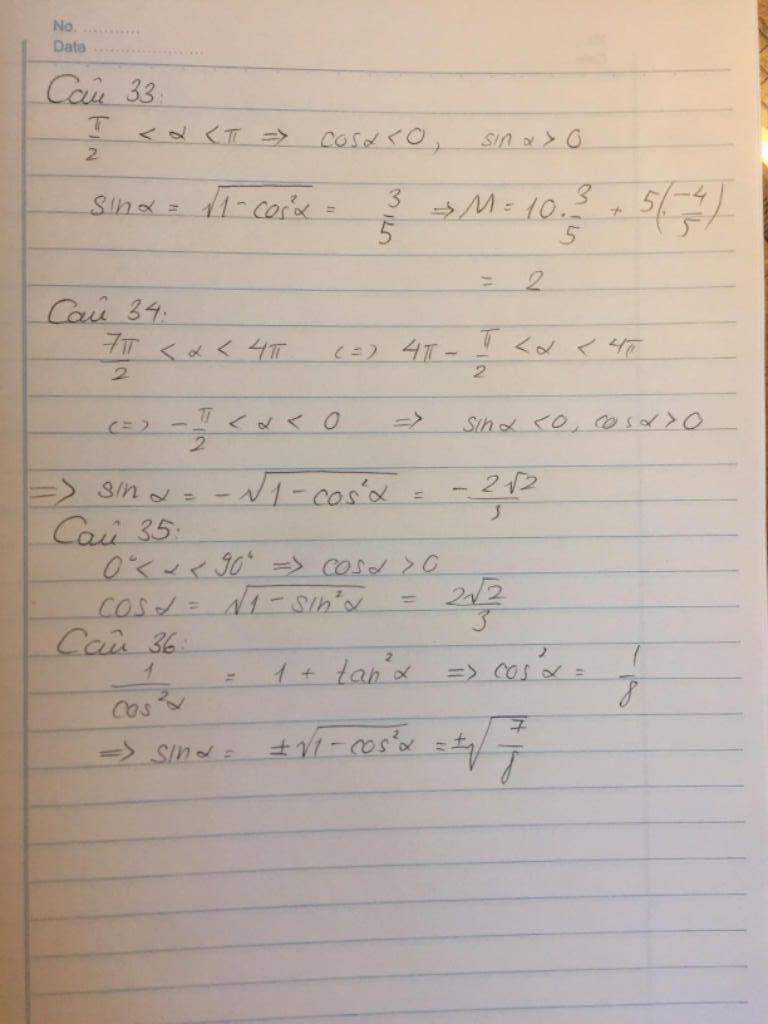 No. ............
Date .......................
Câu 33:
π/2 < α < π => cosα < 0, sinα > 0
sinα = √(1 - cos²α) = 3/5 => M = 10.3/5 + 5(.-4/5)
= 2
Câu 34:
7π/2 < α < 4π (=) 4π - π/2 < α < 4π
(=) -π/2 < α < 0 => sinα < 0, cosα > 0
=> sinα = -√(1 - cos²α) = -2√2/3
Câu 35:
0° < α < 90° => cosα > 0
cosα = √(1 - sin²α) = 2√2/3
Câu 36:
1/cos²α = 1 + tan²α => cos²α = 1/8
=> sinα = ±√(1 - cos²α) = ±√(7/8)